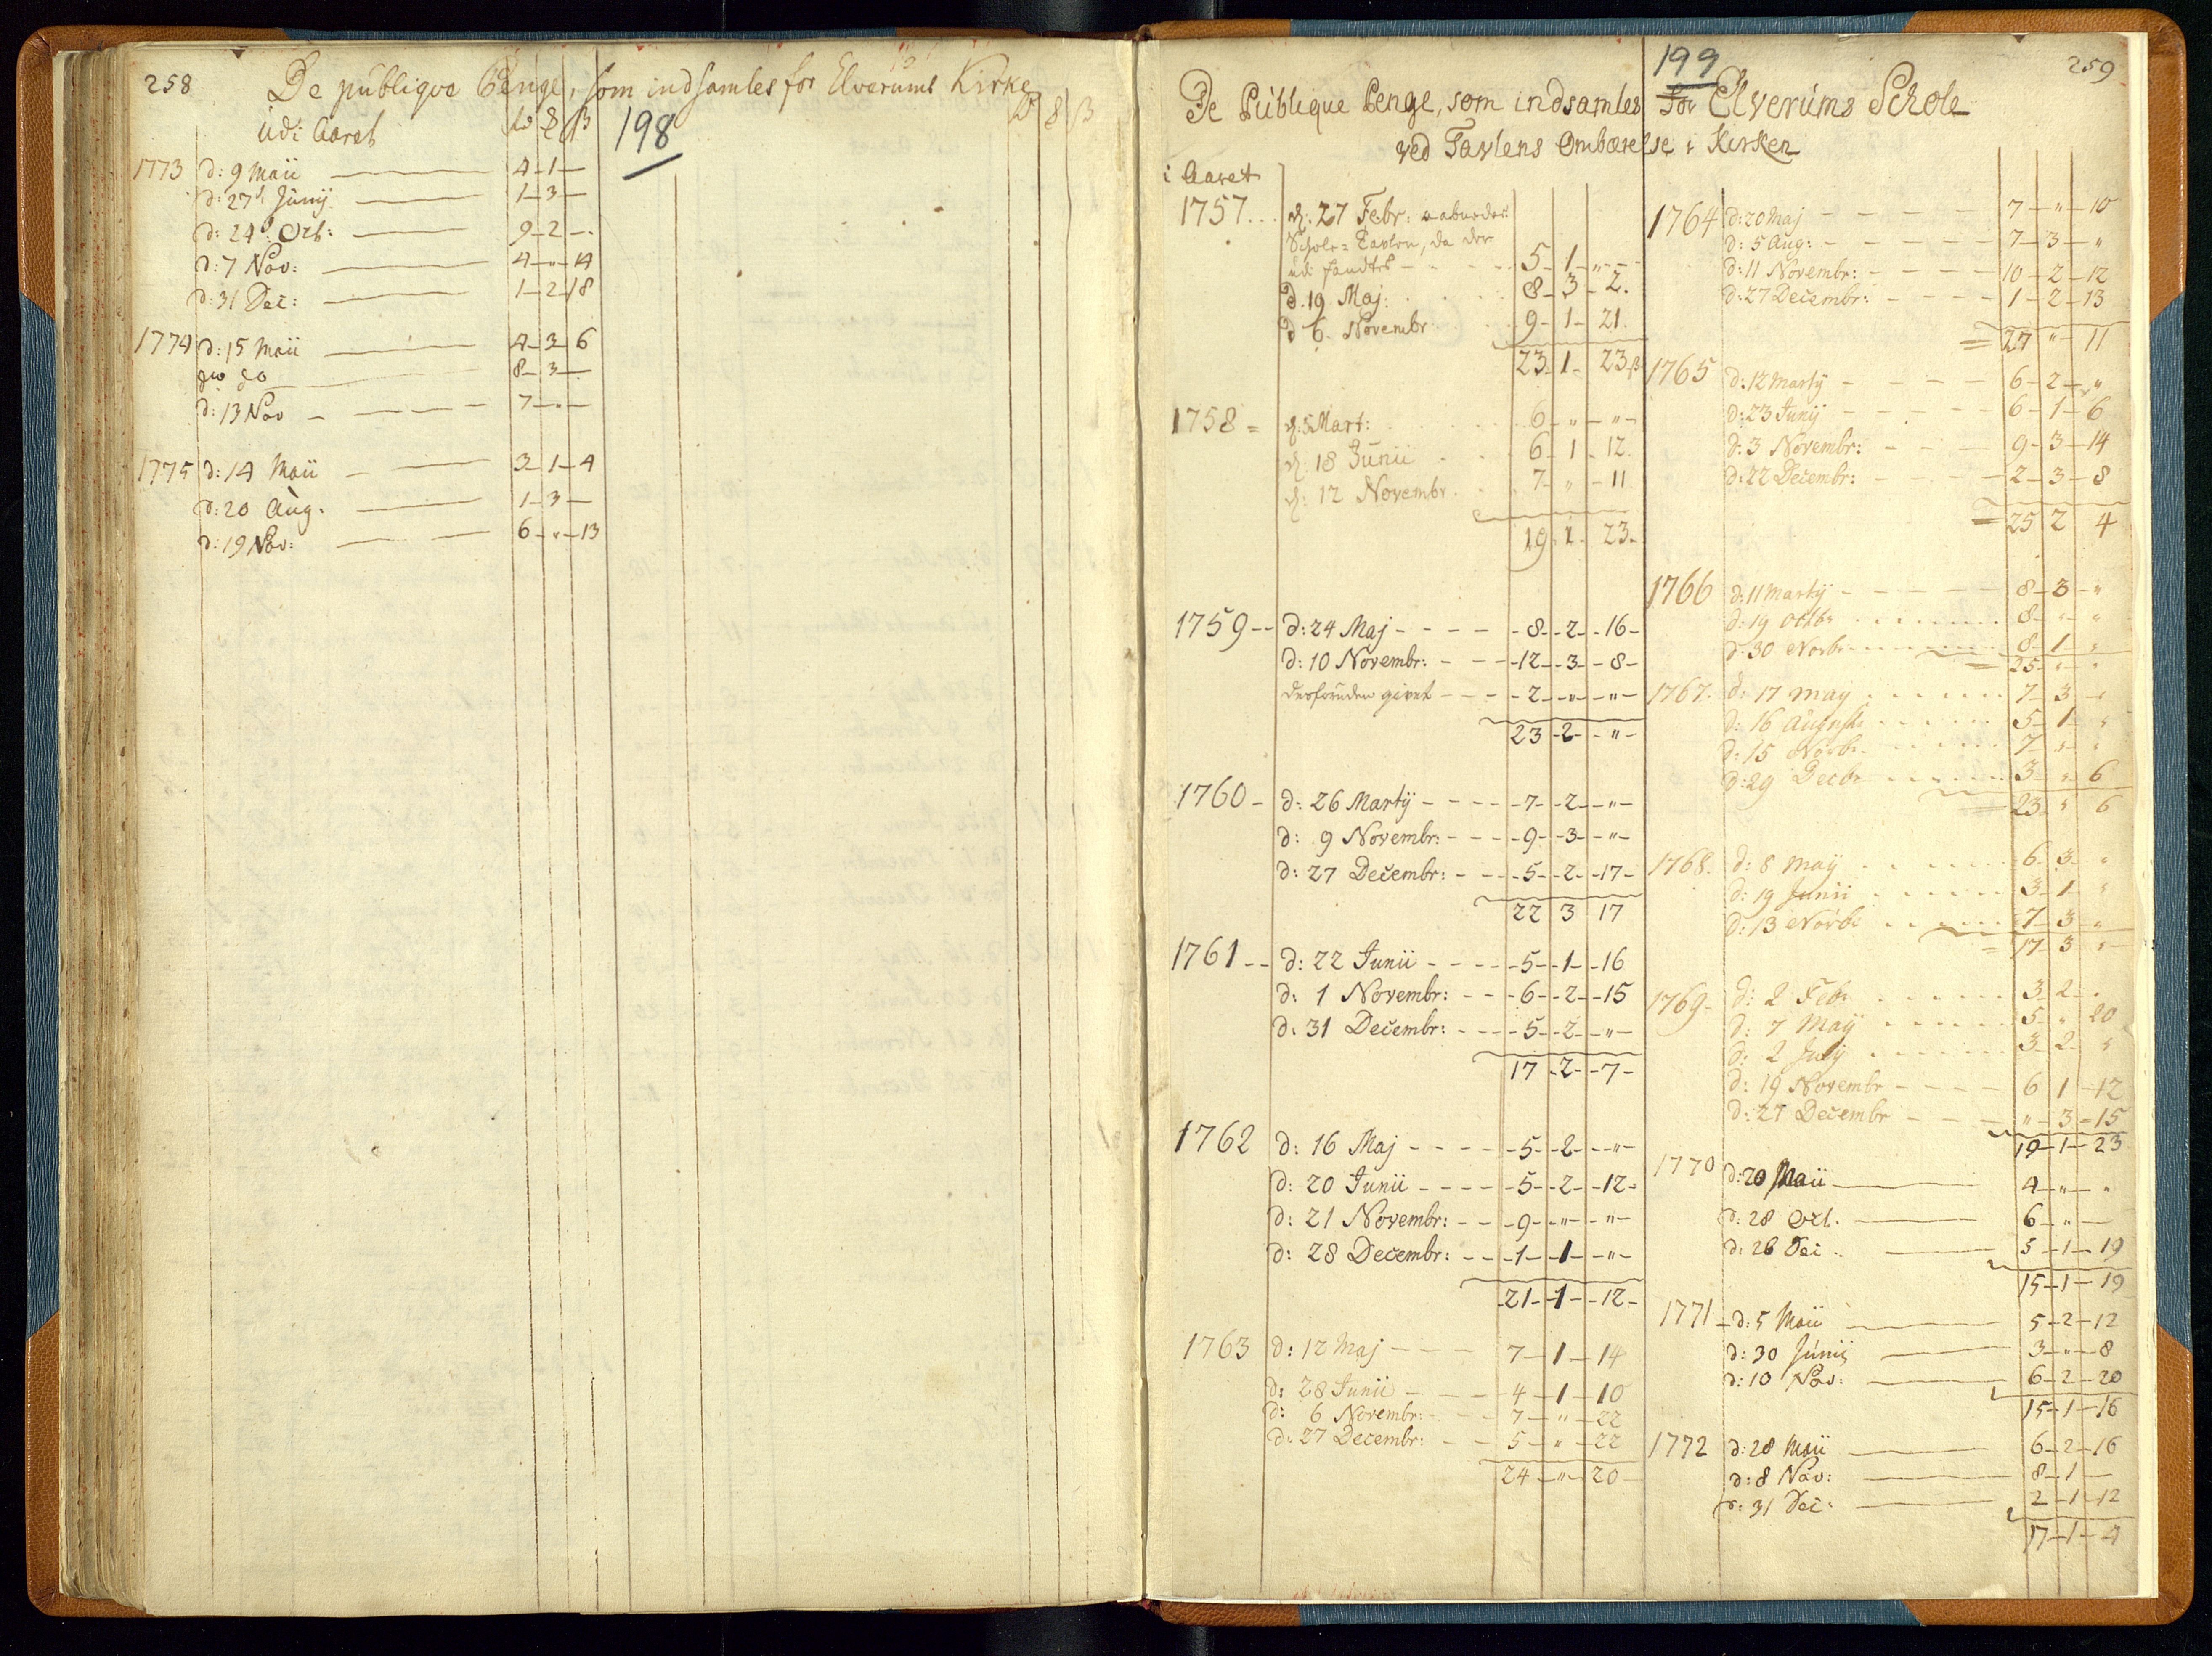 258 De publiqve Penge, som indsamles for Elverums Kirke
udi Aaret
198
1773 d: 9 Maii 4-1-
d: 27d Junij 1-3-
d: 24d Octb: 9-2-
d: 7 Nov: 4-"-14
d: 31 Dec: 1-2-18
1774 d: 15 Maii 4-3-6
8-3-
d: 13 Nov 7-"-
1775 d: 14 Maii 3-1-4
d: 20 Aug. 1-3-
d: 19 Nov: 6-"-13
199
259
De Publique Penge, som indsamles for Elverums Schole
ved Tavlens Ombærelse i Kirken
i Aaret
1757... d. 27 Febr: aabnedes
Schole-Tavlen, da der
udi fandtes - 5-1-"-
d. 19 Maj: 8-3-2.
d 6. Novembr 9-1-21.
23-1-23 ß
1758 = d. 5 Mart: 6-"-"-
d: 18 Junii 6-1-12.
d: 12 Novembr. 7-"-11
19-2-23-
1759-- d: 24 Maj - - - - 8-2-16-
d: 10 Novembr: - - - 12-3-8-
desforuden givet - - - 2-"-"-
23-2-"-
1760- d: 26 Martij - - - - 7-2-"-
d: 9 Novembr: - - - 9-3-"-
d: 27 Decembr: - - - 5-2-17-
22 3 17
1761-- d: 22 Junii - - - - 5-1-16
d: 1 Novembr: - - - 6-2-15
d: 31 Decembr: - - - 5-2-"-
17-2-7-
1762 d: 16 Maj - - - - 5-2-"-
d: 20 Junii - - - - 5-2-12-
d: 21 Novembr: - - - 9-"-"-
d: 28 Decembr: - - - 1-1-"-
21-1-12-
1763 d: 12 Maj - - - 7-1-14
d: 28 Junii - - - 4-1-10
d: 6 Novembr: - - 7-"-22
d: 27 Decembr: - - 5-"-22
24-"-20-
1764 d: 20 Maj - - - - - 7-"-10
d: 5 Aug: - - - - - 7-3-"
d: 11 Novembr: - - - - 10-2-12
d: 27 Decembr: - - - - 1-2-13
= 27 "-11
1765 d: 12 Martij - - - - 6-2-"
d: 23 Junij - - - - - 6-1-6
d: 3 Novembr: - - - 9-3-14
d: 22 Decembr: - - - 2-3-8
= 25 2 4
1766 d: 11 Martij - - - - - 8-3-"
d: 19 Octbr 8-"-"
d: 30 Novbr 8-1-"
= 25-"-"
1767. d: 17 may 7-3-"
d: 16 Augusti 5-1-"
d: 15 Novbr 7-"-"
d: 29 Decbr 3-"-6
= 23 " 6
1768. d: 8 maij 6-3-"
d: 19 Junii 3-1-"
d: 13 Novbr 7-3-"
= 17 3 "
1769- d: 2 Febr 3-2-"
d: 7 Maij 5-"-20
d: 2 July 3-2-"
d: 19 Novembr - - - - 6 1-12
d: 27 Decembr - - - "-3-15
19-1-23
1770 d: 20 Maii 4-"-"
d: 28 Oct. 6-"-
d: 26 Dec: 5-1-19
15-1-19
1771- d: 5 Maii 5-2-12
d: 30 Junij 3-"-8
d: 10 Nov: 6-2-20
15-1-16
1772 d: 28 Maii 6-2-16
d: 8 Nov: 8-1-
d: 31 Dec: 2-1-12
17-1-4